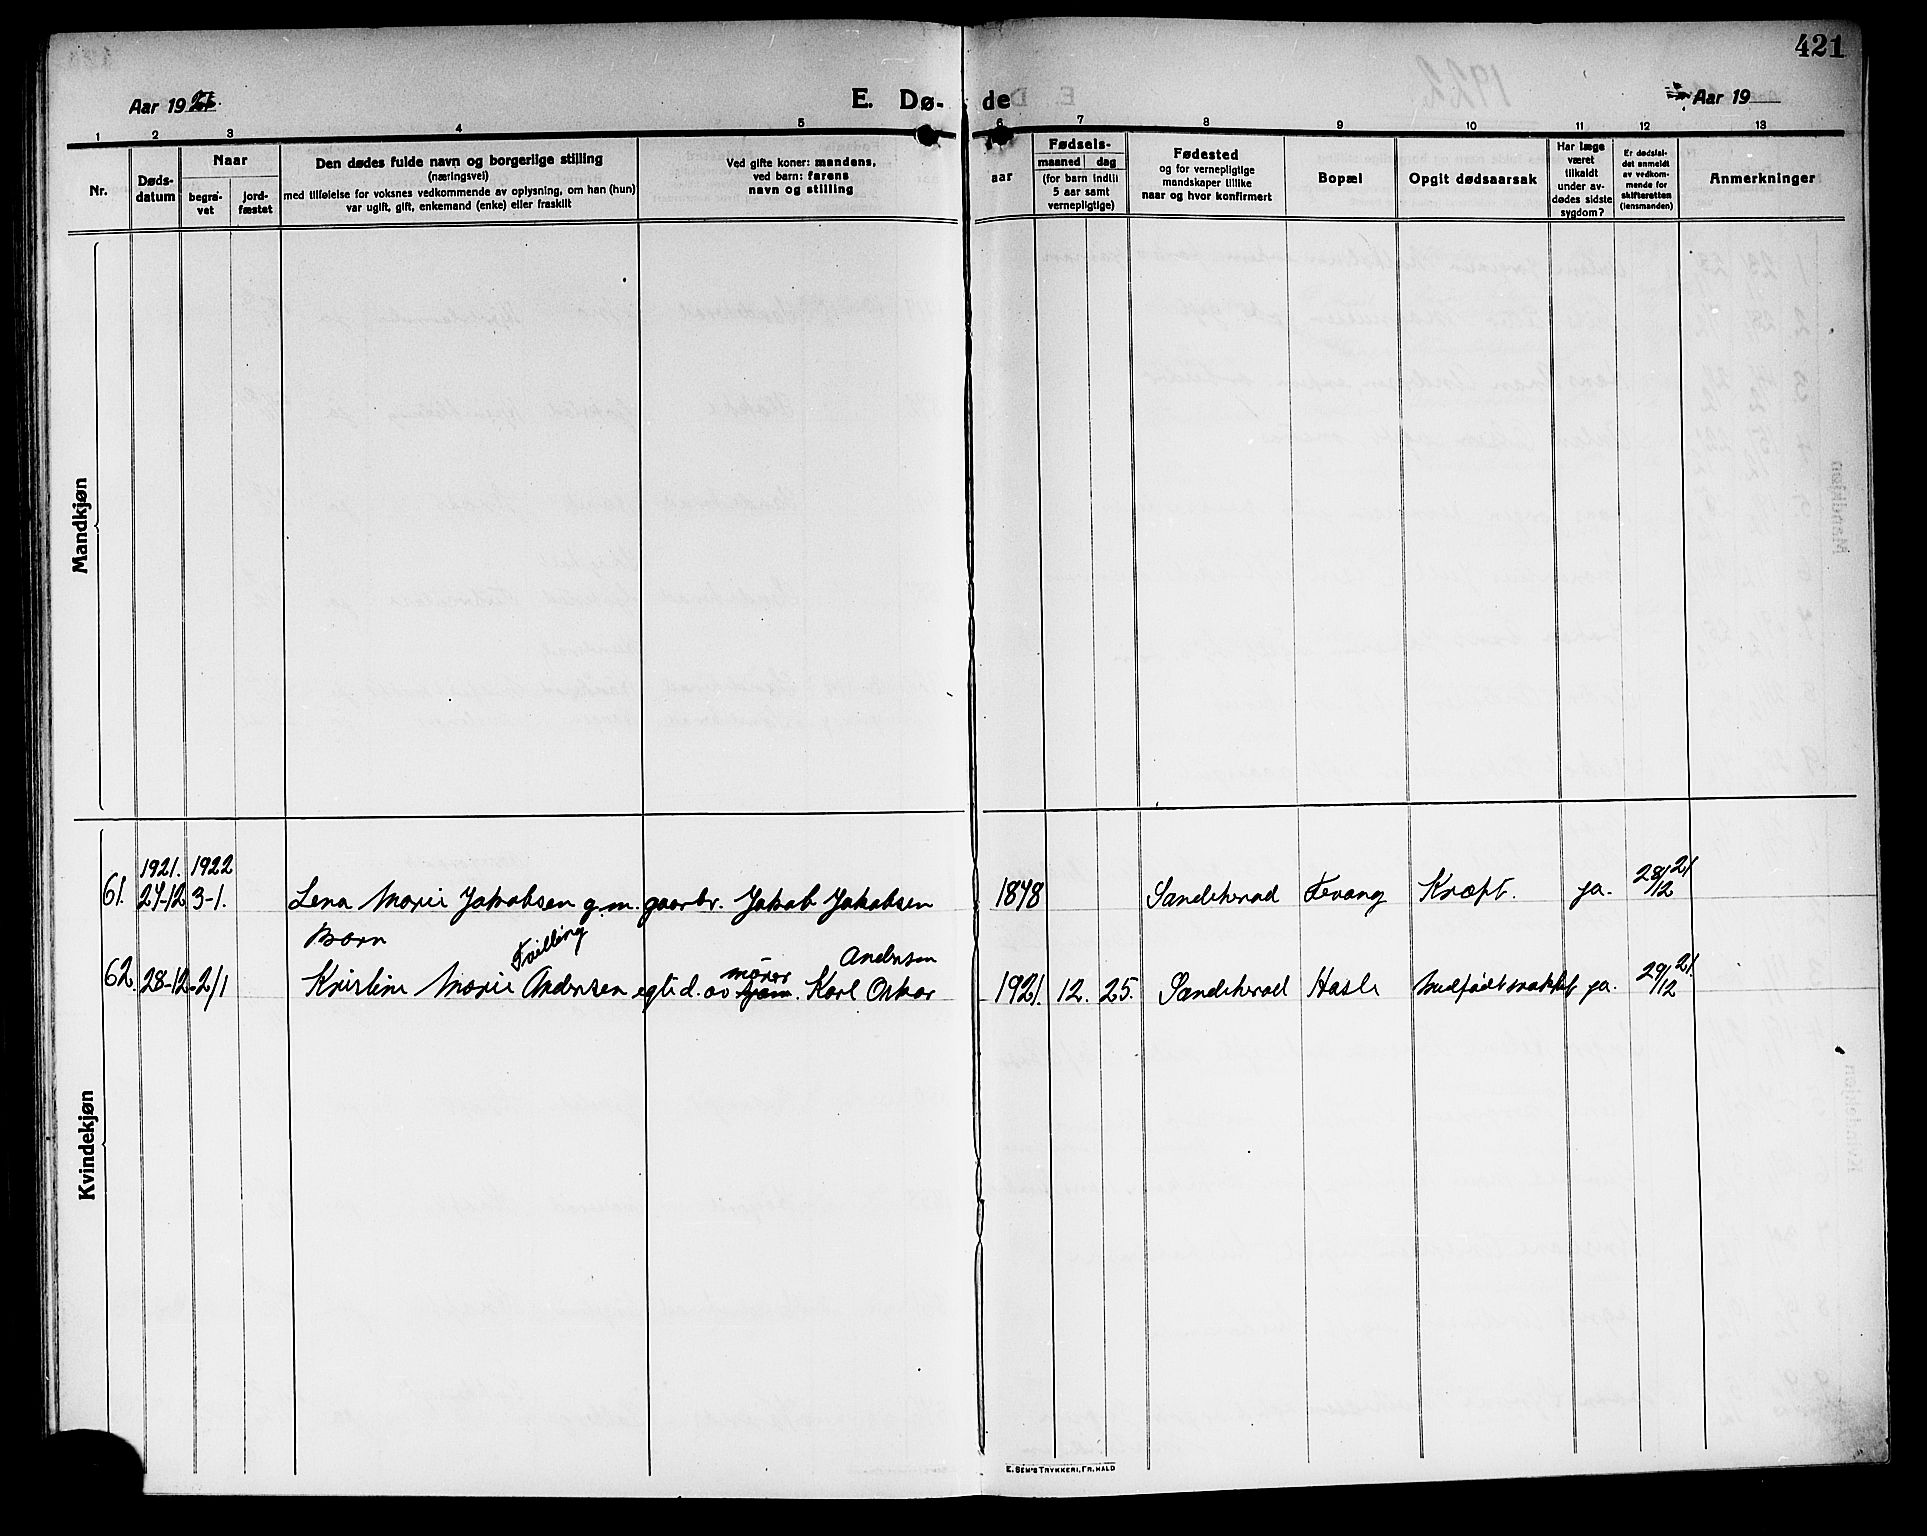 421
Aar 1921.
E. Dø- de
Aar 19
1 2 3 4 5 6 7 8 9 10 11 12 13
Nr.
Døds-
datum
Naar
begra-
vet
jord-
fæstet
Den dødes fulde navn og borgerlige stilling
(næringsvei)
med tilføielse for voksnes vedkommende av oplysning, om han (hun)
var ugift, gift, enkemand (enke) eller fraskilt
Ved gifte koner: mandens,
ved barn: farens
navn og stilling
aar
Fødsels-
maaned dag
(for barn indtil
5 aar samt
vernepligtige)
Fødested
og for vernepligtige
mandskaper tillike
naar og hvor konfirmert
Bopæl
Opgit dødsaarsak
Har læge
været
tilkaldt
under av-
dødes sidste
sygdom?
Er dødsfal-
det anmeldt
av vedkom-
mende for
skifteretten
(lensmanden)
Anmerkninger
Mandkjøn
Kvindekjøn
1921. 1922
61. 27-12 3-1. Lena Marie Jakobsen g.m. gaarbr. Jakob Jakobsen 1848 Sandeherad Fevang Kræft. ja. 28/12 21
Barn
Tvilling
Andersen
murer
62. 28-12 2/1 Kristine Marie Andersen egtd. av Karl Oskar 1921. 12. 25. Sandeherad Hasle Medfødt svakhet ja. 29/12 21.
E. SEM'S TRYKKERI, FR.HALD